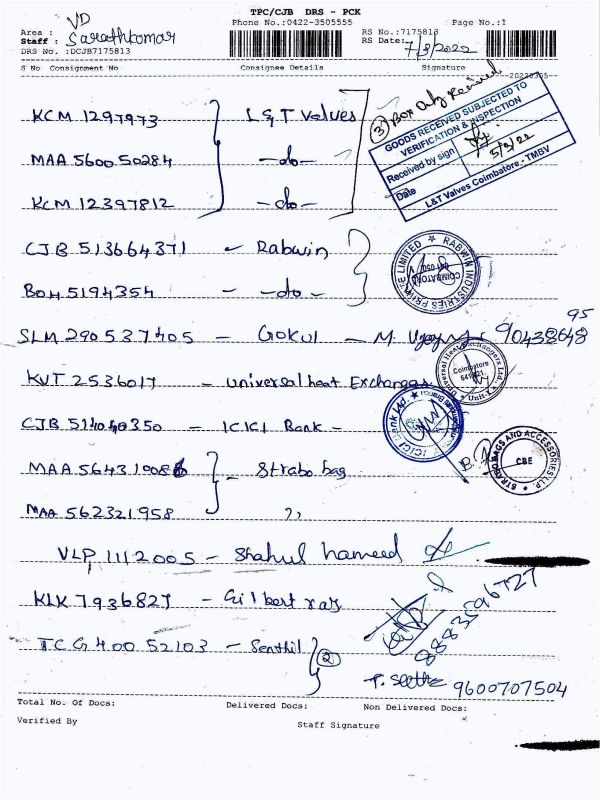 TPC/CJB DRS - PCK
Phone No.:0422-3505555
Page No.:1
Area : VD
Staff : Sarathkumar
DRS No. :DCJB7175813
RS No.:7175813
RS Date: 7/3/2022
S No Consignment No Consignee Details Signature
20220305
KCM 1297973 L&T Valves
③ Box Only Received
MAA 560050284 -do-
KCM 12397812 -do-
GOODS RECEIVED SUBJECTED TO
VERIFICATION & INSPECTION
Received by sign
Date 5/3/22
L&T Valves Coimbatore - TMBV
CJB 513664371 - Rabwin
BOM 5194354 - -do-
RABWIN INDUSTRIES PRIVATE LIMITED
COIMBATORE
SLM 290537405 - Gokul - M. 9043864895
KVT 2536017 - universal heat Exchanger
Universal Heat Exchangers Ltd.
Coimbatore
Unit-1
CJB 514040350 - ICICI Bank -
ICICI Bank Ltd.
MAA 564319086 - Strabo bag
MAA 562321958 ,,
STRABO BAGS AND ACCESSORIES LLP
CBE
VLP 1112005 - Shahul hameed
KLK 7936827 - Gilbert raj
8883596727
TCG 40052103 - Senthil ②
9600707504
Total No. Of Docs: Delivered Docs: Non Delivered Docs:
Verified By Staff Signature